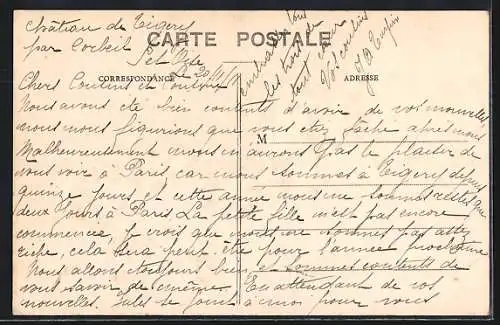 Château de Tigery
par Corbeil
Set Oise
CARTE POSTALE
CORRESPONDANCE
ADRESSE
Le 20/11/
Chers Cousins et Cousine
Nous avons été bien contents d'avoir de vos nouvelles
nous nous figurions que vous étiez fâché après nous
M
Malheureusement nous n'aurons pas le plaisir de
vous voir à Paris car nous sommes à Tigery depuis
quinze jours et cette année nous ne sommes restés que
deux jours à Paris La petite fille n'est pas encore
commencée, je crois que nous ne sommes pas assez
riche, cela sera peut être pour l'année prochaine
Nous allons toujours bien, et sommes contents de
vous savoir de même. En attendant de vos
nouvelles. Jules se joint à moi pour vous
embrasser tous
les trois de
tout cœur
Vos cousins